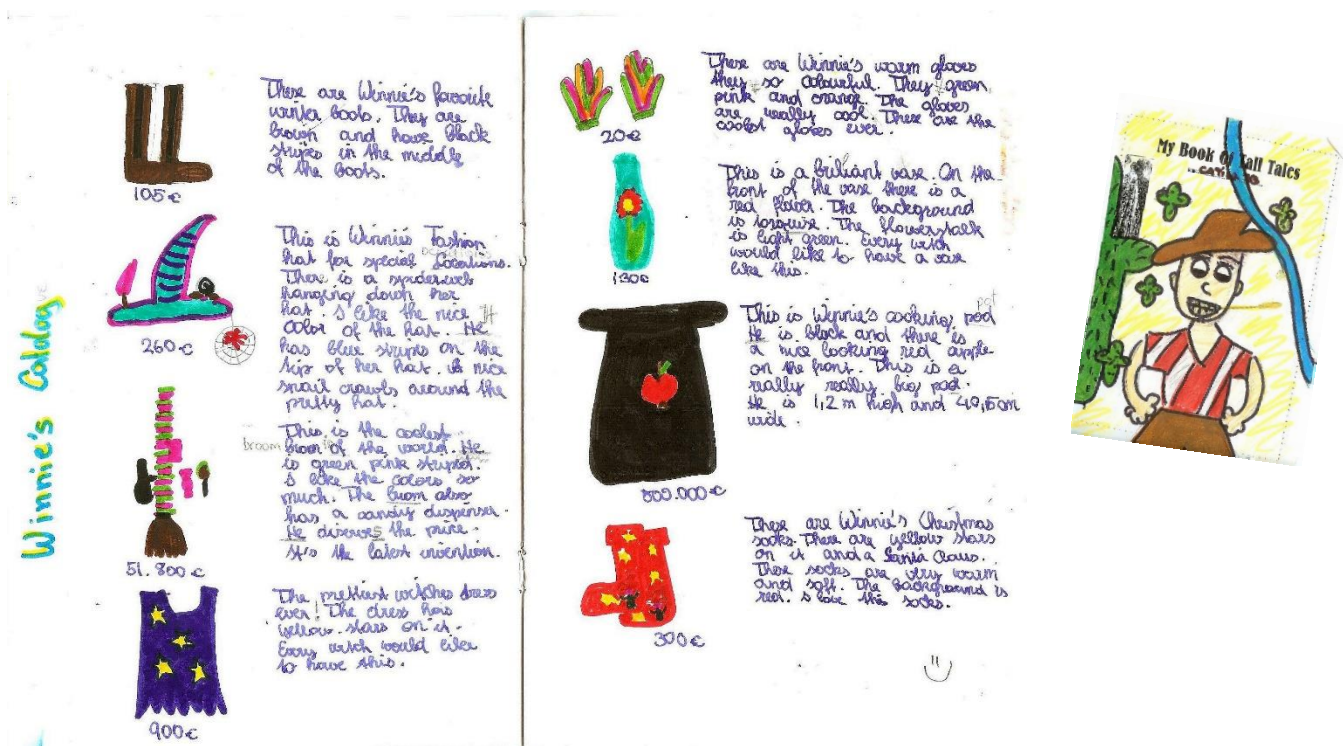 Winnie's Catalog
These are Winnie's favorite
winter boots. They are
brown and have black
stripes in the middle
of the boots.
105€
This is Winnie's Fashion
hat for special Locations.
There is a spiderweb
hanging down her
hat. I like the nice
color of the hat. He
It
has blue strips on the
tip of her hat. A nice
snail crawls around the
pretty hat.
260€
This is the coolest
broom
of the world. He
is green pink striped.
I like the colors so
much. The broom also
has a candy dispenser.
He diserves the price.
It's the latest invention.
51.800€
The prettiest witches dress
ever! The dress has
yellow stars on it.
Every witch would like
to have this.
900€
These are Winnie's warm gloves
they so colourful. They green,
pink and orange. The gloves
are really cool. These are the
coolest gloves ever.
20€
This is a briliant vase. On the
front of the vase there is a
red flower. The background
is torquise. The flowerstalk
is light green. Every witch
would like to have a vase
like this.
130€
pot
This is Winnie's cooking pod
He is black and there is
a nice looking red apple
on the front. This is a
really really big pod.
He is 1,2 m high and 40,5cm
wide.
800.000€
These are Winnie's Christmas
socks. There are yellow stars
on it and a Santa Claus.
These socks are very warm
and soft. The background is
red. I love this socks.
300€
My Book Of Tall Tales